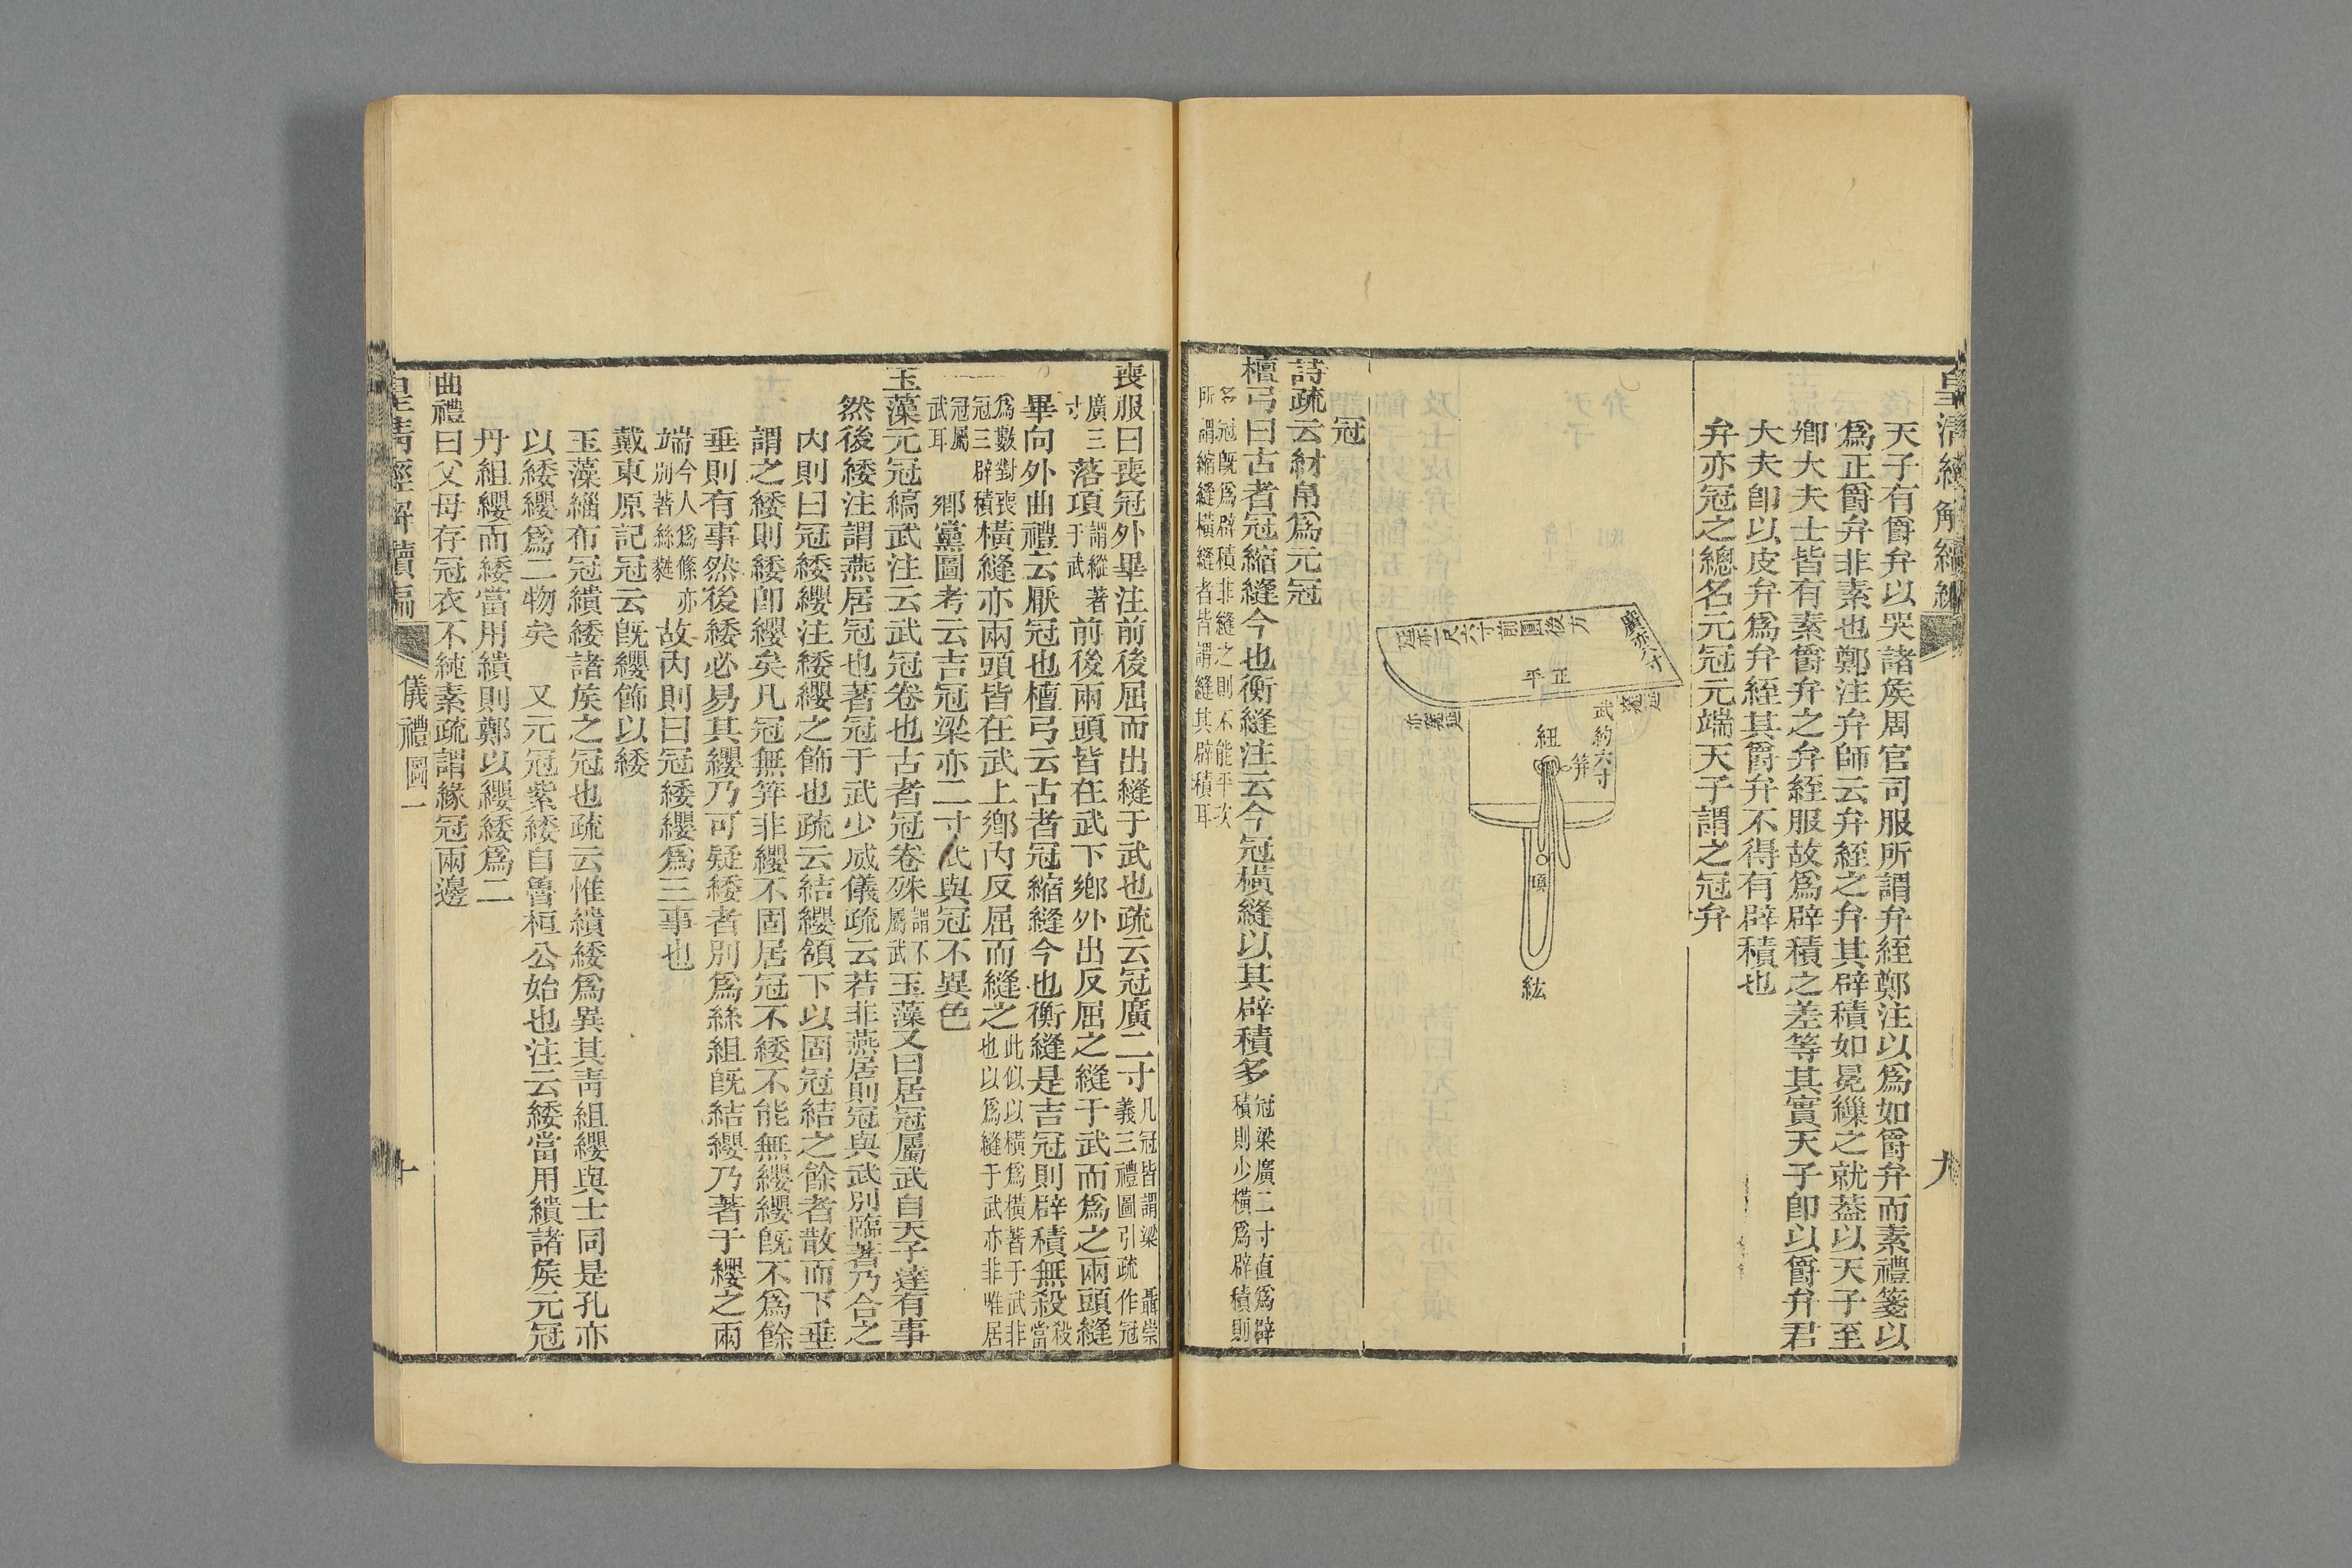 皇清經解續編
九
天子有爵弁以哭諸矦周官司服所謂弁絰鄭注以爲如爵弁而素禮箋以
爲正爵弁非素也鄭注弁師云弁絰之弁其辟積如冕繅之就葢以天子至
鄉大夫士皆有素爵弁之弁絰服故爲辟積之差等其實天子卽以爵弁君
大夫卽以皮弁爲弁絰其爵弁不得有辟積也
弁亦冠之總名元冠元端天子謂之冠弁
廣亦八寸
延亦一尺六寸前圓後方
正平
武約六寸
紐
笄
項
紘
冠
詩疏云紂帛爲元冠
檀弓曰古者冠縮縫今也衡縫注云今冠橫縫以其辟積多
冠梁廣二寸直爲辟
積則少橫爲辟積則
多冠旣爲辟積非縫之則不能平次
所謂縮縫橫縫者皆謂縫其辟積耳
喪服曰喪冠外畢注前後屈而出縫于武也疏云冠廣二寸
凡冠皆謂梁 聶崇
義三禮圖引疏作冠
廣三
寸
落項
謂縱著
于武
前後兩頭皆在武下鄉外出反屈之縫于武而爲之兩頭縫
畢向外曲禮云厭冠也檀弓云古者冠縮縫今也衡縫是吉冠則辟積無殺
殺
當
爲數對喪
冠三辟積
橫縫亦兩頭皆在武上鄉內反屈而縫之
此似以橫爲橫著于武非
也以爲縫于武亦非唯居
冠屬
武耳
鄉黨圖考云吉冠梁亦二寸武與冠不異色
玉藻元冠縞武注云武冠卷也古者冠卷殊
謂不
屬武
玉藻又曰居冠屬武自天子達有事
然後緌注謂燕居冠也著冠于武少威儀疏云若非燕居則冠與武別臨著乃合之
內則曰冠緌纓注緌纓之飾也疏云結纓頷下以固冠結之餘者散而下垂
謂之緌則緌卽纓矣凡冠無笄非纓不固居冠不緌不能無纓纓旣不爲餘
垂則有事然後緌必易其纓乃可疑緌者別爲絲組旣結纓乃著于纓之兩
端
今人爲絛亦
別著絲毿
故內則曰冠緌纓爲三事也
戴東原記冠云旣纓飾以緌
玉藻緇布冠繢緌諸矦之冠也疏云惟繢緌爲異其靑組纓與士同是孔亦
以緌纓爲二物矣 又元冠紫緌自魯桓公始也注云緌當用繢諸矦元冠
丹組纓而緌當用繢則鄭以纓緌爲二
曲禮曰父母存冠衣不純素疏謂緣冠兩邊
皇淸經解續編
儀禮圖一
十